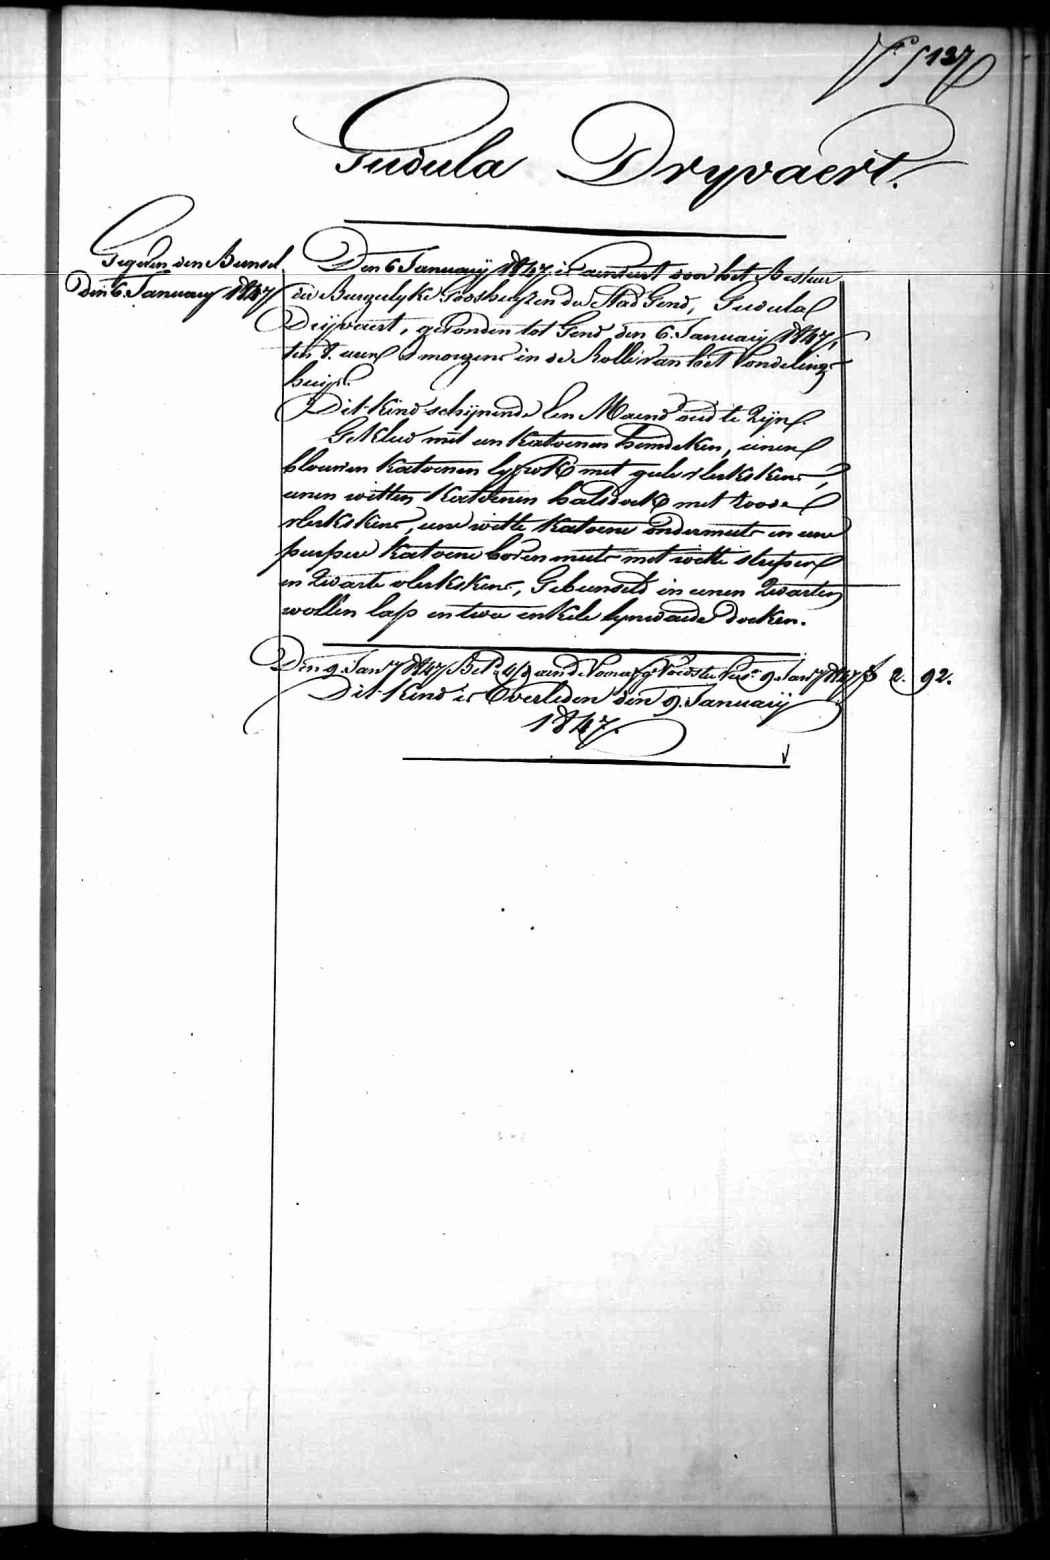 F° 137
Gudula Dryvaert.
Gegeven den Bunsel
den 6. January 1847
Den 6 Januarij 1847. is aenveert door het Bestuer
der Burgerlyke Godshuyzen der Stad Gend, Gudula
Dryvaert, gevonden tot Gend den 6. Januarij 1847,
ten 8. uren 's morgens in de Rolle van het Vondeling-
huijs.
Dit Kind schijnende een Maend oud te zijn.
Gekleed met een katoenen hemdeken, eenen
blauwen katoenen lyfrok met gele vlekskens,
eenen witten katoenen halsdoek met roode
vlekskens, eene witte katoene ondermuts en eene
purpere katoene bovenmuts met witte strepen
en zwarte vlekskens, Gebunseld in eenen zwarten
wollen lap en twee enkele lynwaede doeken.
Den 9. Jany 1847 aen de Voedster 9. Jany 1847 f 2. 92.
Dit Kind is Overleden den 9. Januarij
1847.